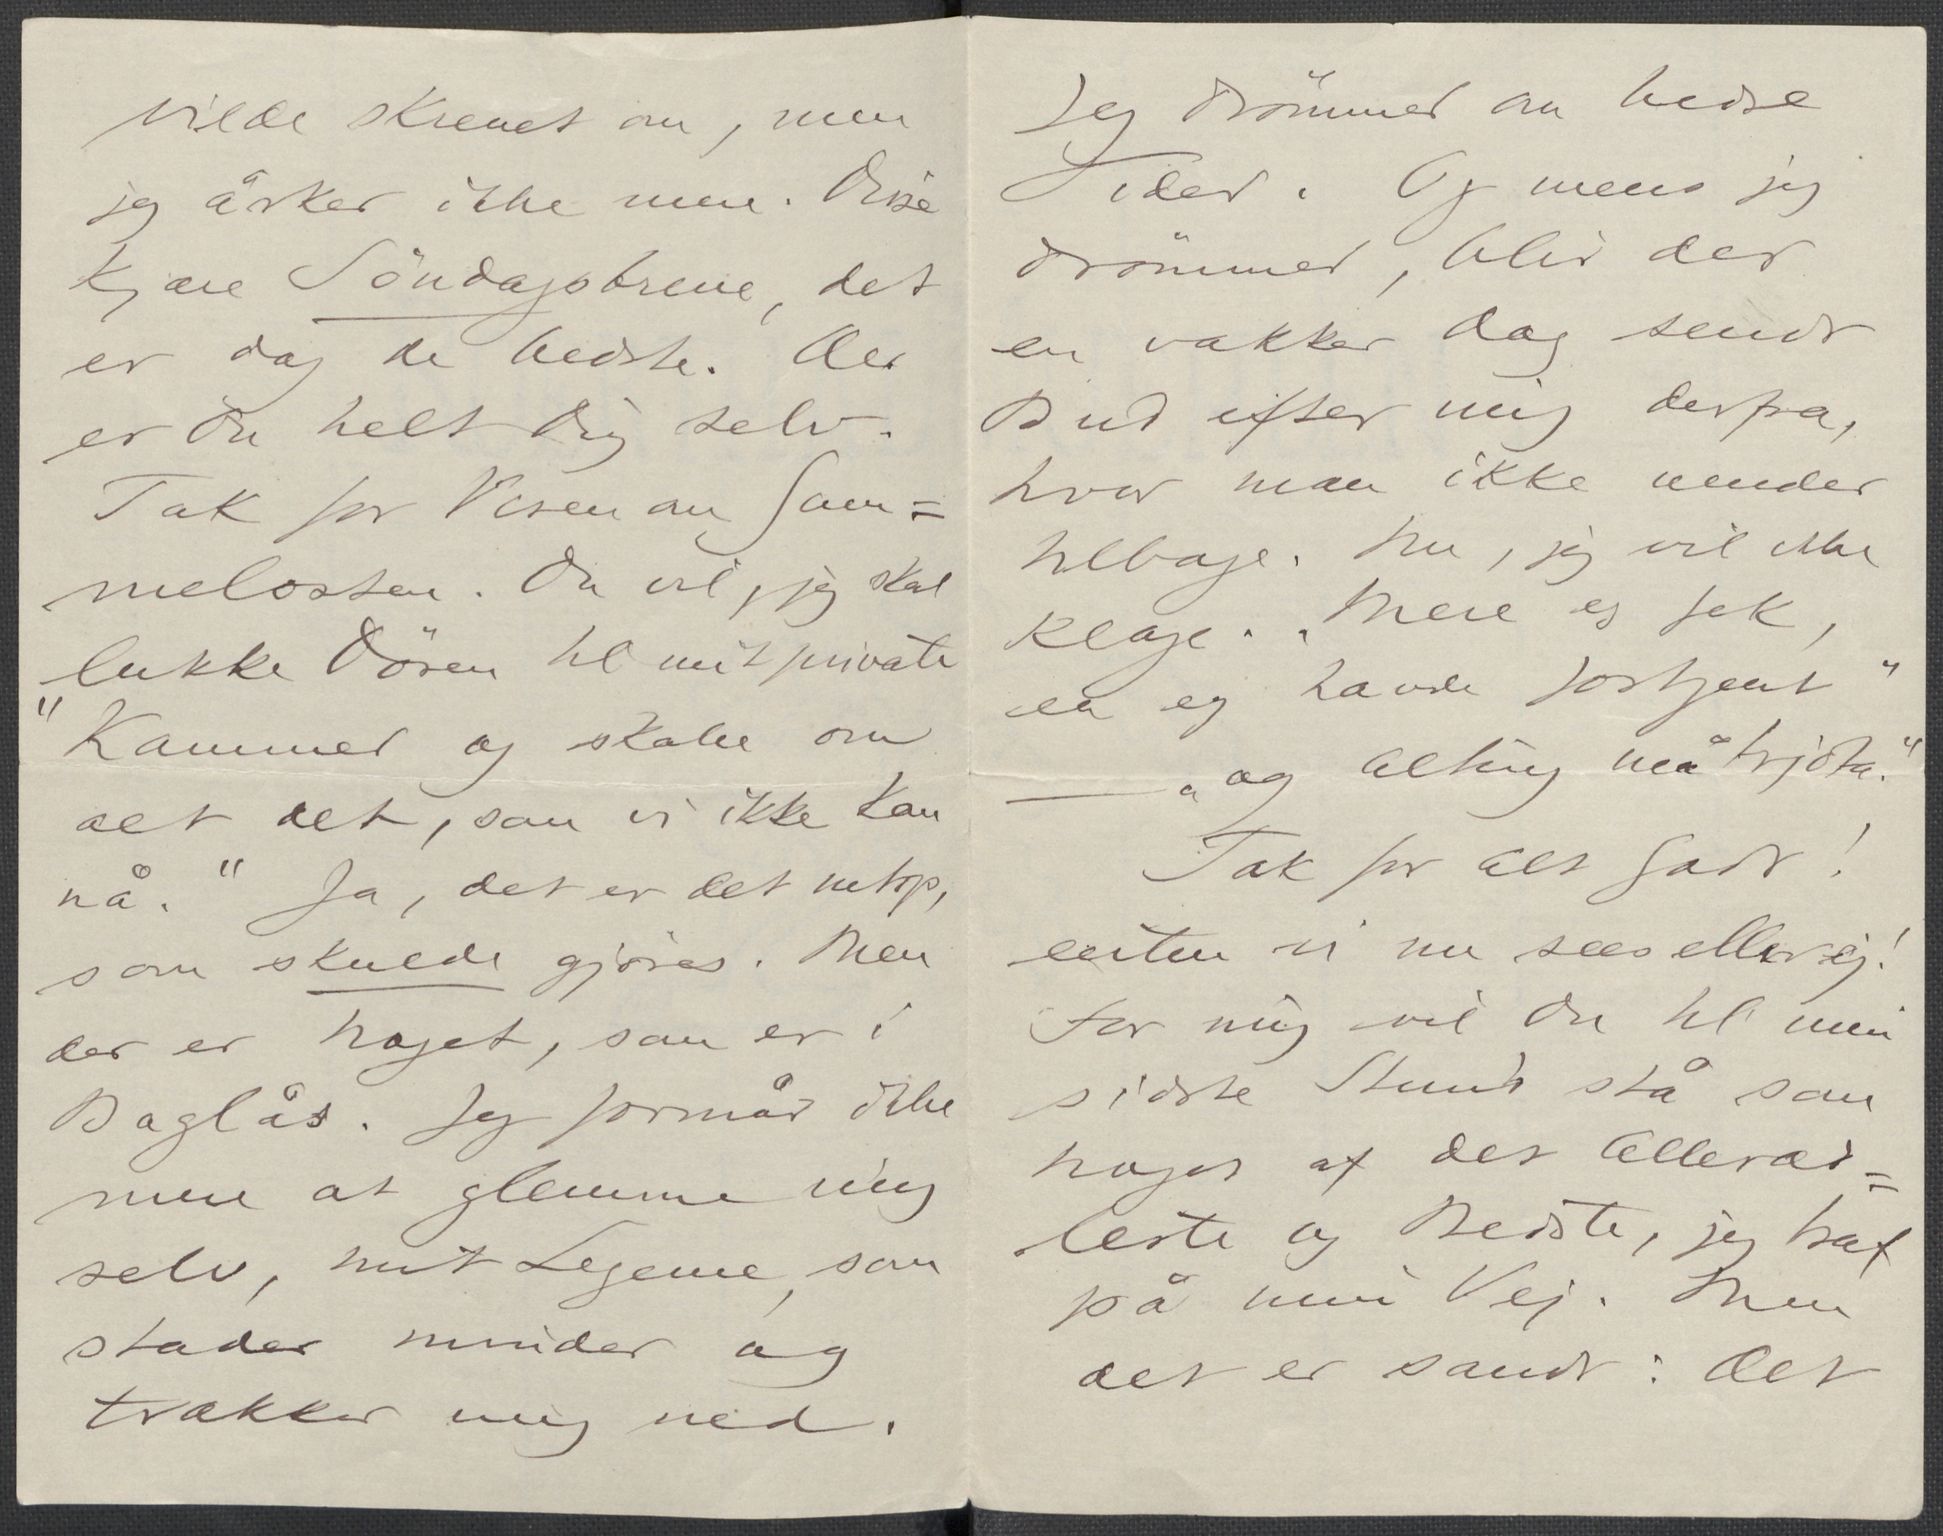 vilde skrevet om, men
jeg årker ikke mere. Disse
kjære Söndagsbreve, det
er dog de bedste. Der
er Du helt Dig selv.
Tak for Visen om Gam=
melosten. Du vil, jeg skal
lukke Dören til mit private
"Kammer og skabe om
alt det, som vi ikke kan
nå." Ja, det er det netop,
som skulde gjöres. Men
der er noget, som er i
Baglås. Jeg formår ikke
mere at glemme mig
selv, mit Legeme, som
stader minder og
trækker mig ned.
Jeg drömmer om bedre
Tider. Og mens jeg
drömmer, blir der
en vakker Dag sendt
Bud efter mig derfra,
hvor man ikke vender
tilbage. Nu, jeg vil ikke
klage. "Mere eg fek,
en eg havde fortjent"
— "og alting må trjota."
Tak for alt Godt!
enten vi nu sees eller ej!
For mig vil Du til min
sidste Stund stå som
noget af det Allerær=
leste og Bedste, jeg traf
på min Vej. Men
det er sandt: Det